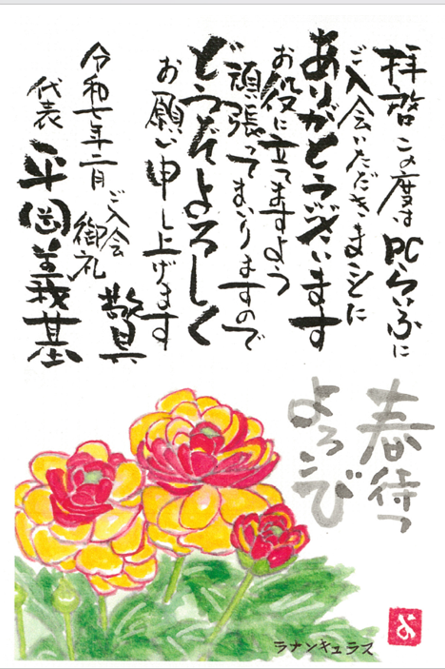 拝啓 この度は PCらいふに
ご入会いただきまことに
ありがとうございます
お役に立てますよう
頑張ってまいりますので
どうぞよろしく
お願い申し上げます
敬具
ご入会
御礼
令和七年二月
代表 平岡義基
春待つ
よろこび
ラナンキュラス
よ